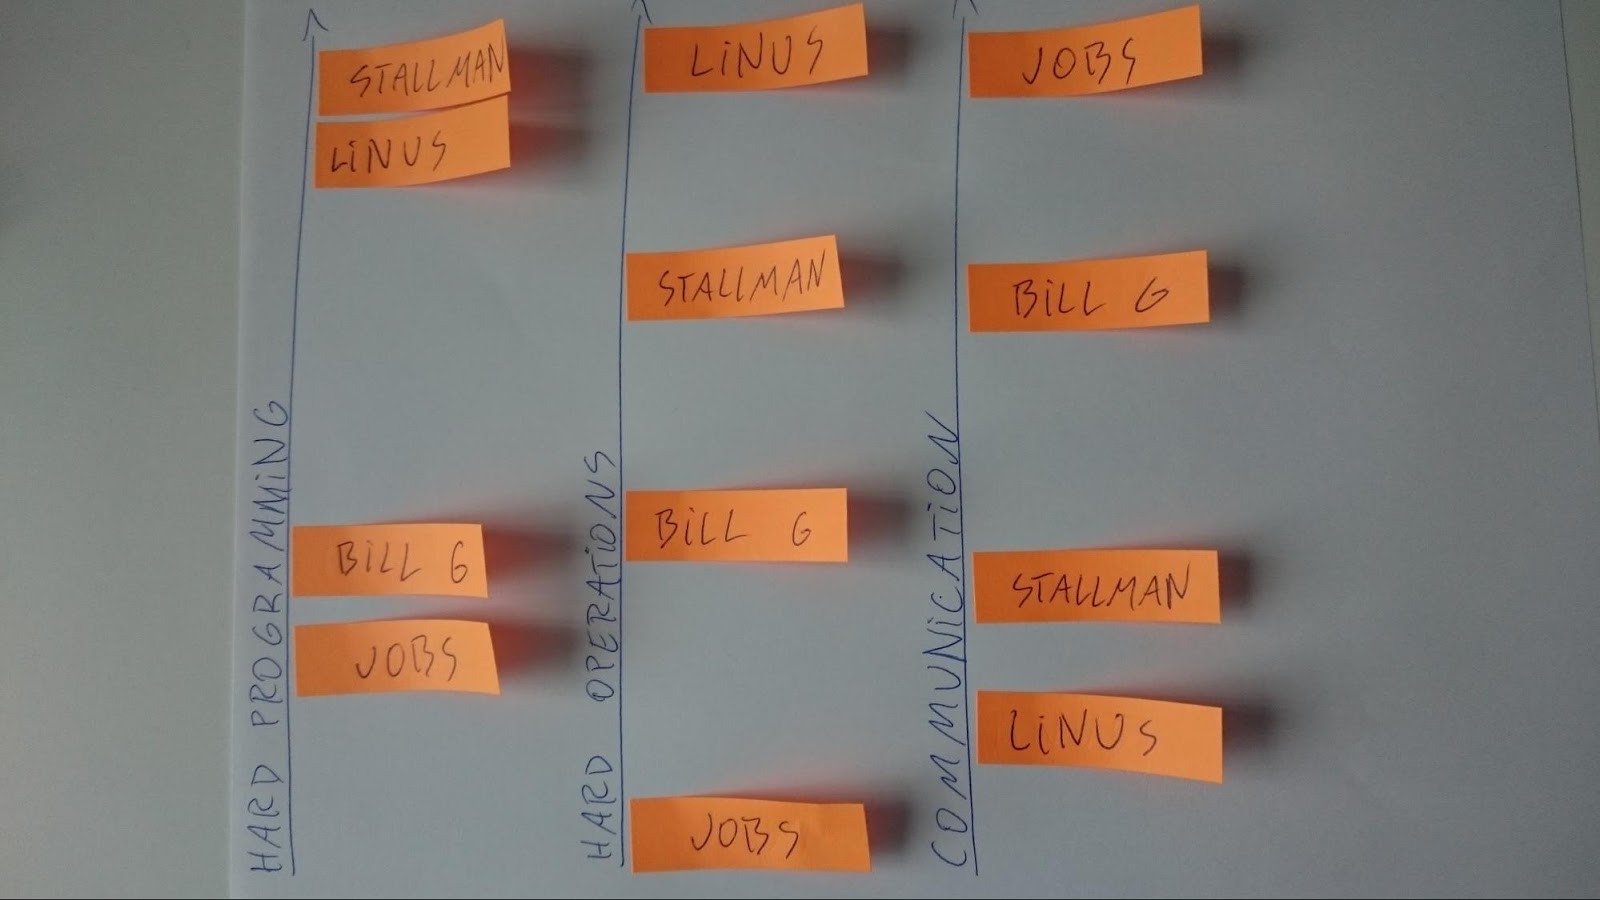 HARD PROGRAMMING
STALLMAN
LiNUS
BiLL G
JOBS
HARD OPERATiONS
LiNUS
STALLMAN
BiLL G
JOBS
COMMUNiCATiON
JOBS
BiLL G
STALLMAN
LiNUS